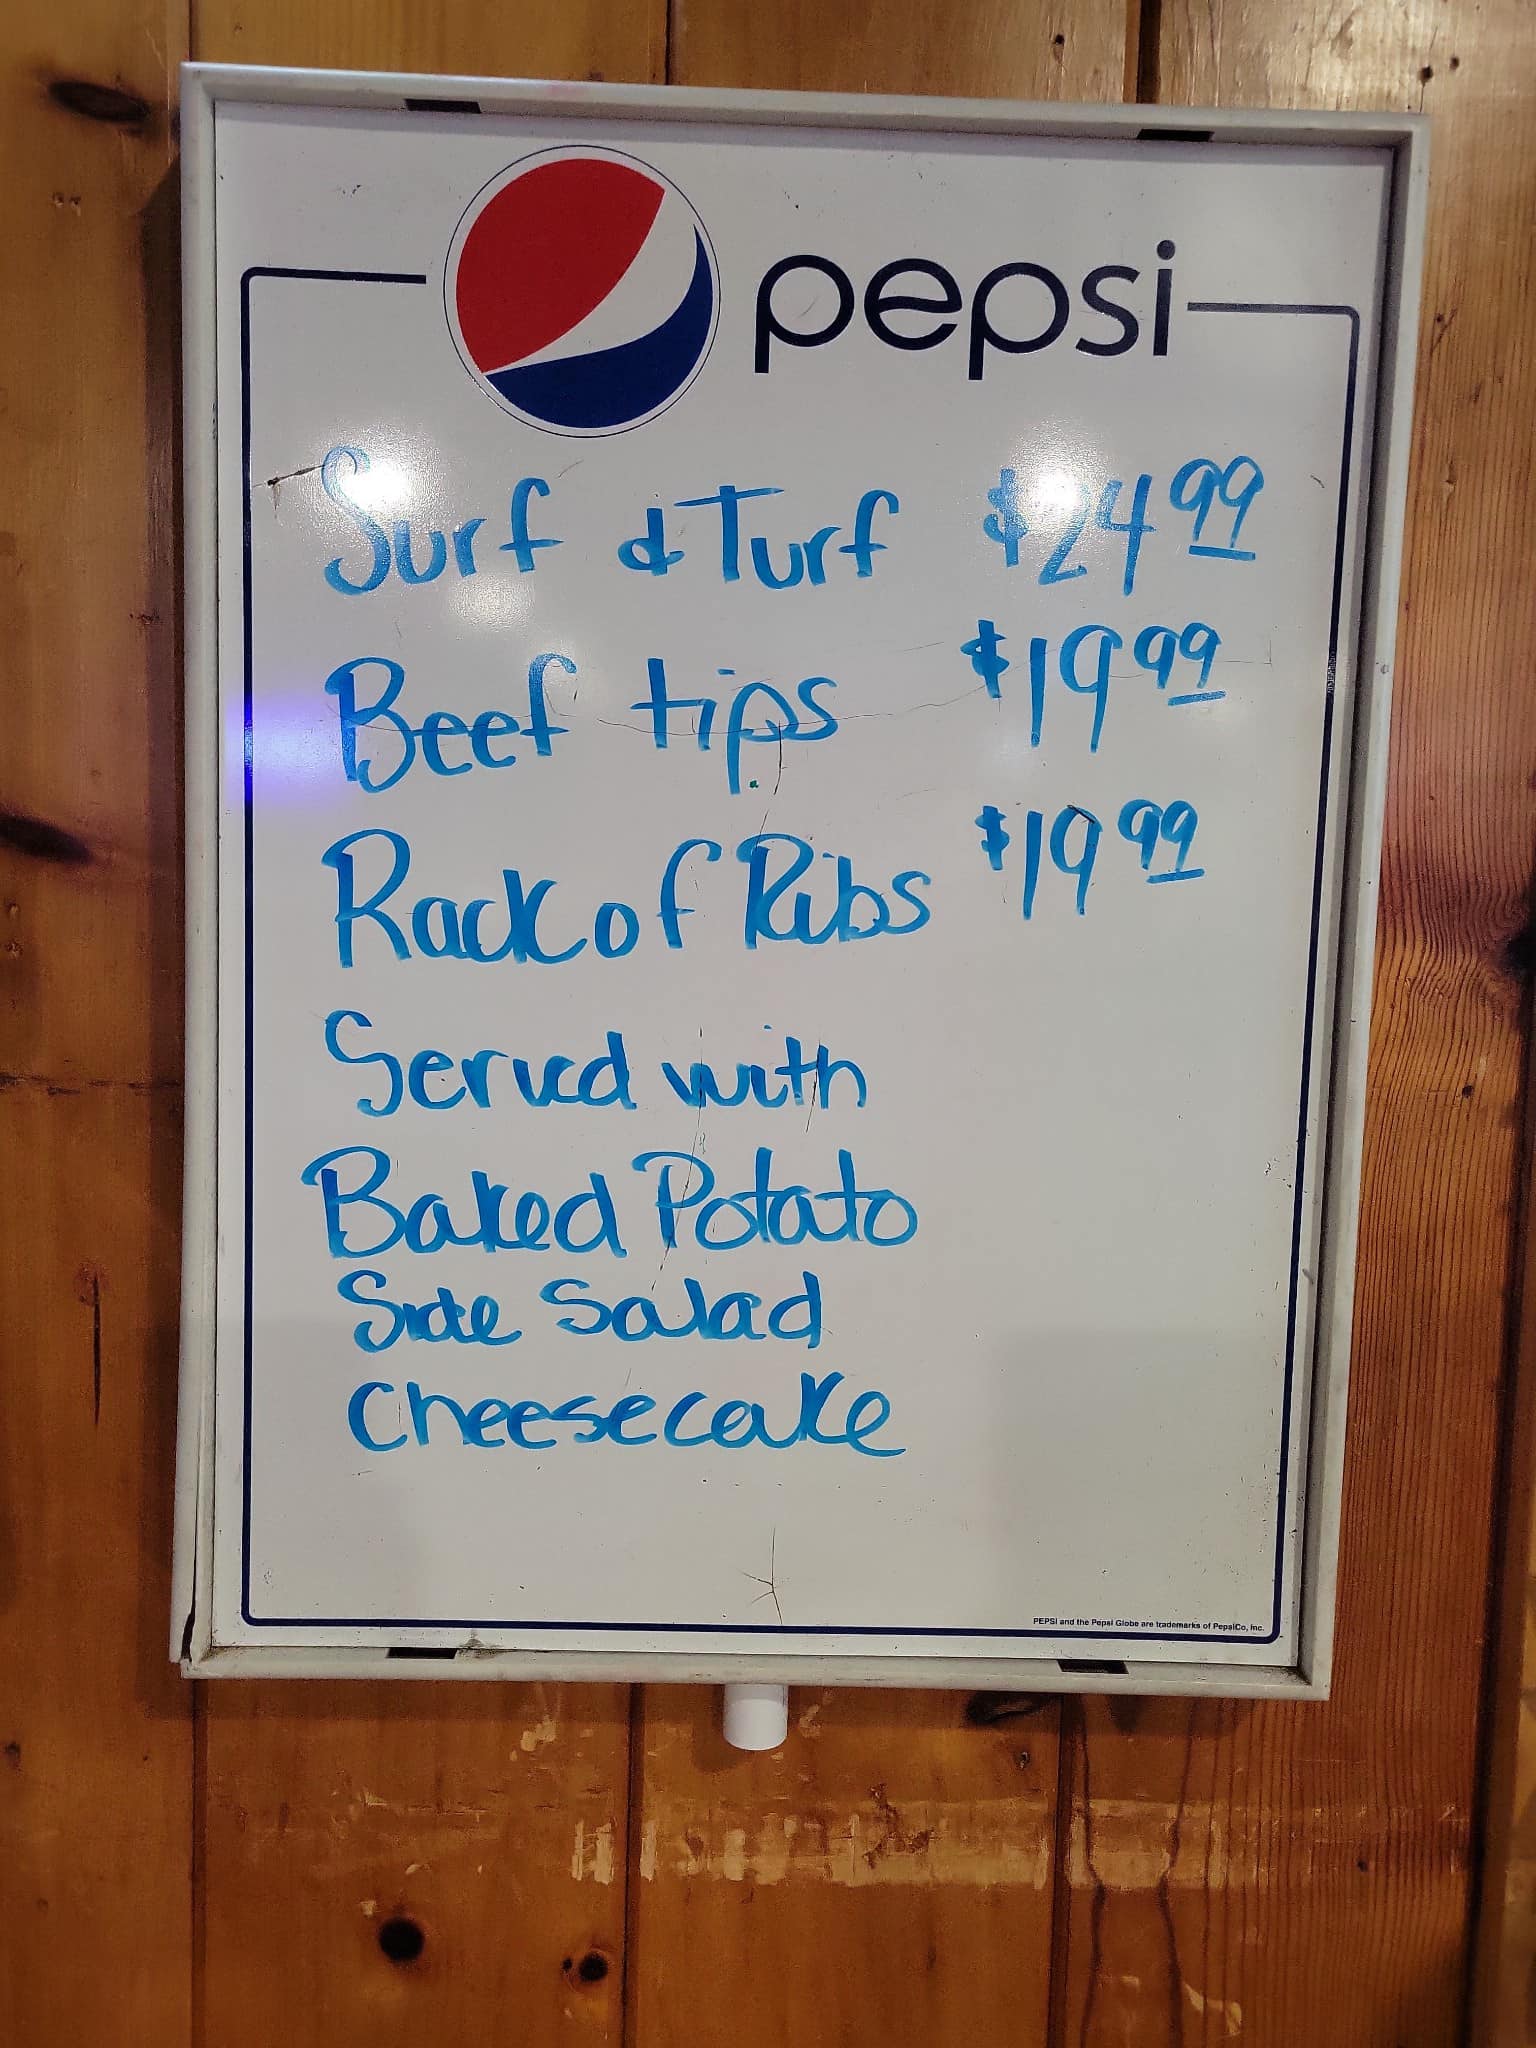 pepsi
Surf & Turf $24.99
Beef tips $19.99
Rack of Ribs $19.99
Served with
Baked Potato
Side Salad
Cheesecake
PEPSI and the Pepsi Globe are trademarks of PepsiCo, Inc.